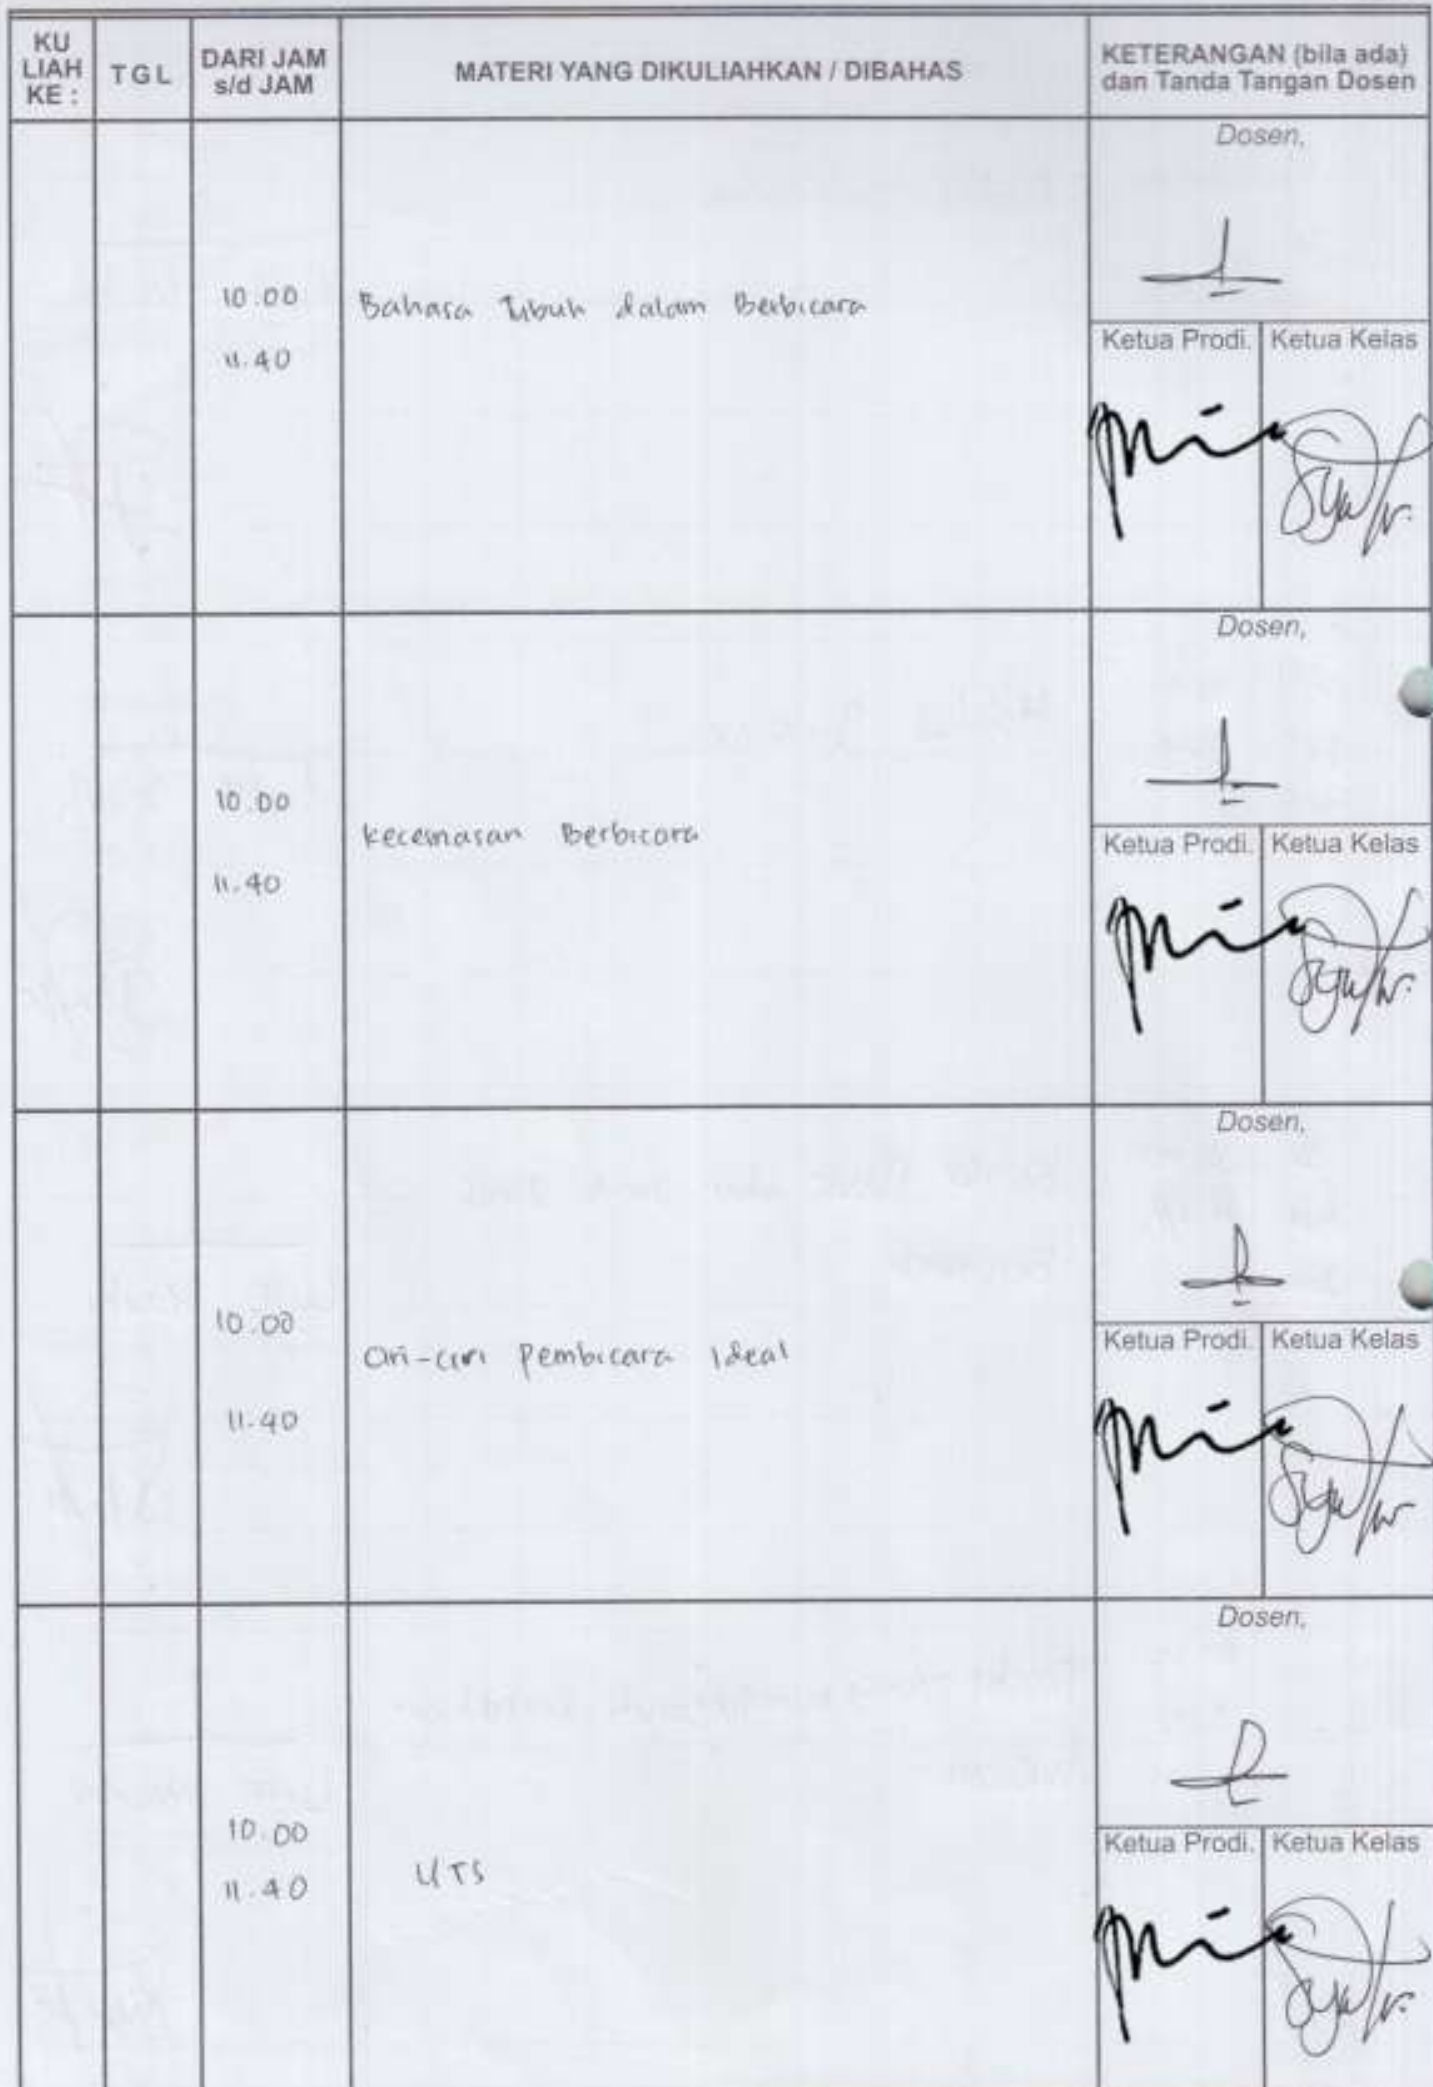 KU LIAH KE :
TGL
DARI JAM s/d JAM
MATERI YANG DIKULIAHKAN / DIBAHAS
KETERANGAN (bila ada) dan Tanda Tangan Dosen
Dosen,
10.00
Bahasa Tubuh dalam Berbicara
11.40
Ketua Prodi.
Ketua Kelas
Dosen,
10.00
kecemasan Berbicara
11.40
Ketua Prodi.
Ketua Kelas
Dosen,
10.00
Ciri-ciri Pembicara Ideal
11.40
Ketua Prodi.
Ketua Kelas
Dosen,
10.00
UTS
11.40
Ketua Prodi.
Ketua Kelas